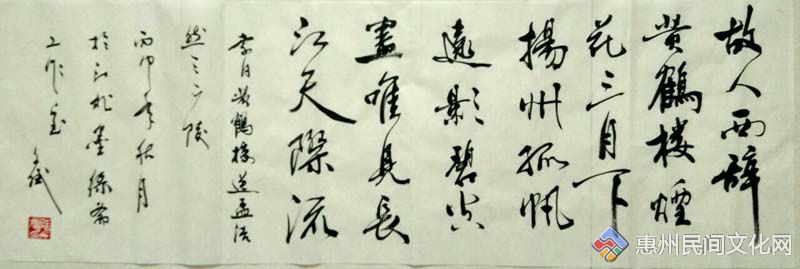 故人西辞
黄鶴楼煙
花三月下
揚州孤帆
遠影碧空
盡唯見長
江天際流
李白黄鶴楼送孟浩
然之广陵
丙申年秋月
於江北墨缘斋
工作室
惠州民间文化网